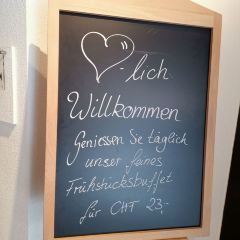 -lich
Willkommen
Geniessen Sie täglich
unser feines
Frühstücksbuffet
für CHF 23,-